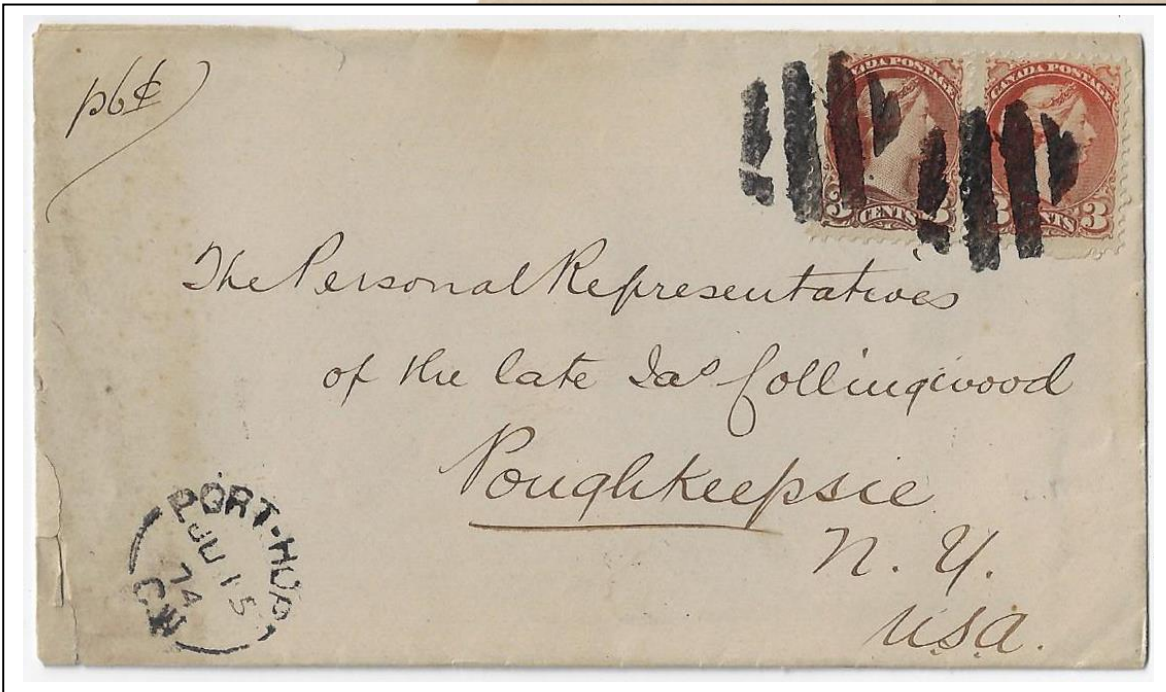 p6¢
CANADA POSTAGE
3 CENTS
CANADA POSTAGE
3 CENTS 3
The Personal Representatives
of the late Jas Collingwood
Poughkeepsie
N. Y.
U.S.A.
PORT-HOPE
JU 15
74
C.W